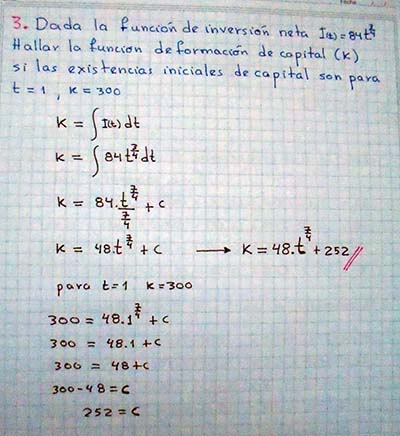 3. Dada la función de inversión neta I(t)=84t^7/4
Hallar la función de formación de capital (K)
si las existencias iniciales de capital son para
t=1, K=300
K = ∫I(t)dt
K = ∫84t^7/4 dt
K = 84.t^7/4 / 7/4 + C
K = 48.t^7/4 + C → K=48.t^7/4+252//
para t=1 K=300
300 = 48.1^7/4 + C
300 = 48.1+C
300 = 48+C
300-48=C
252=C